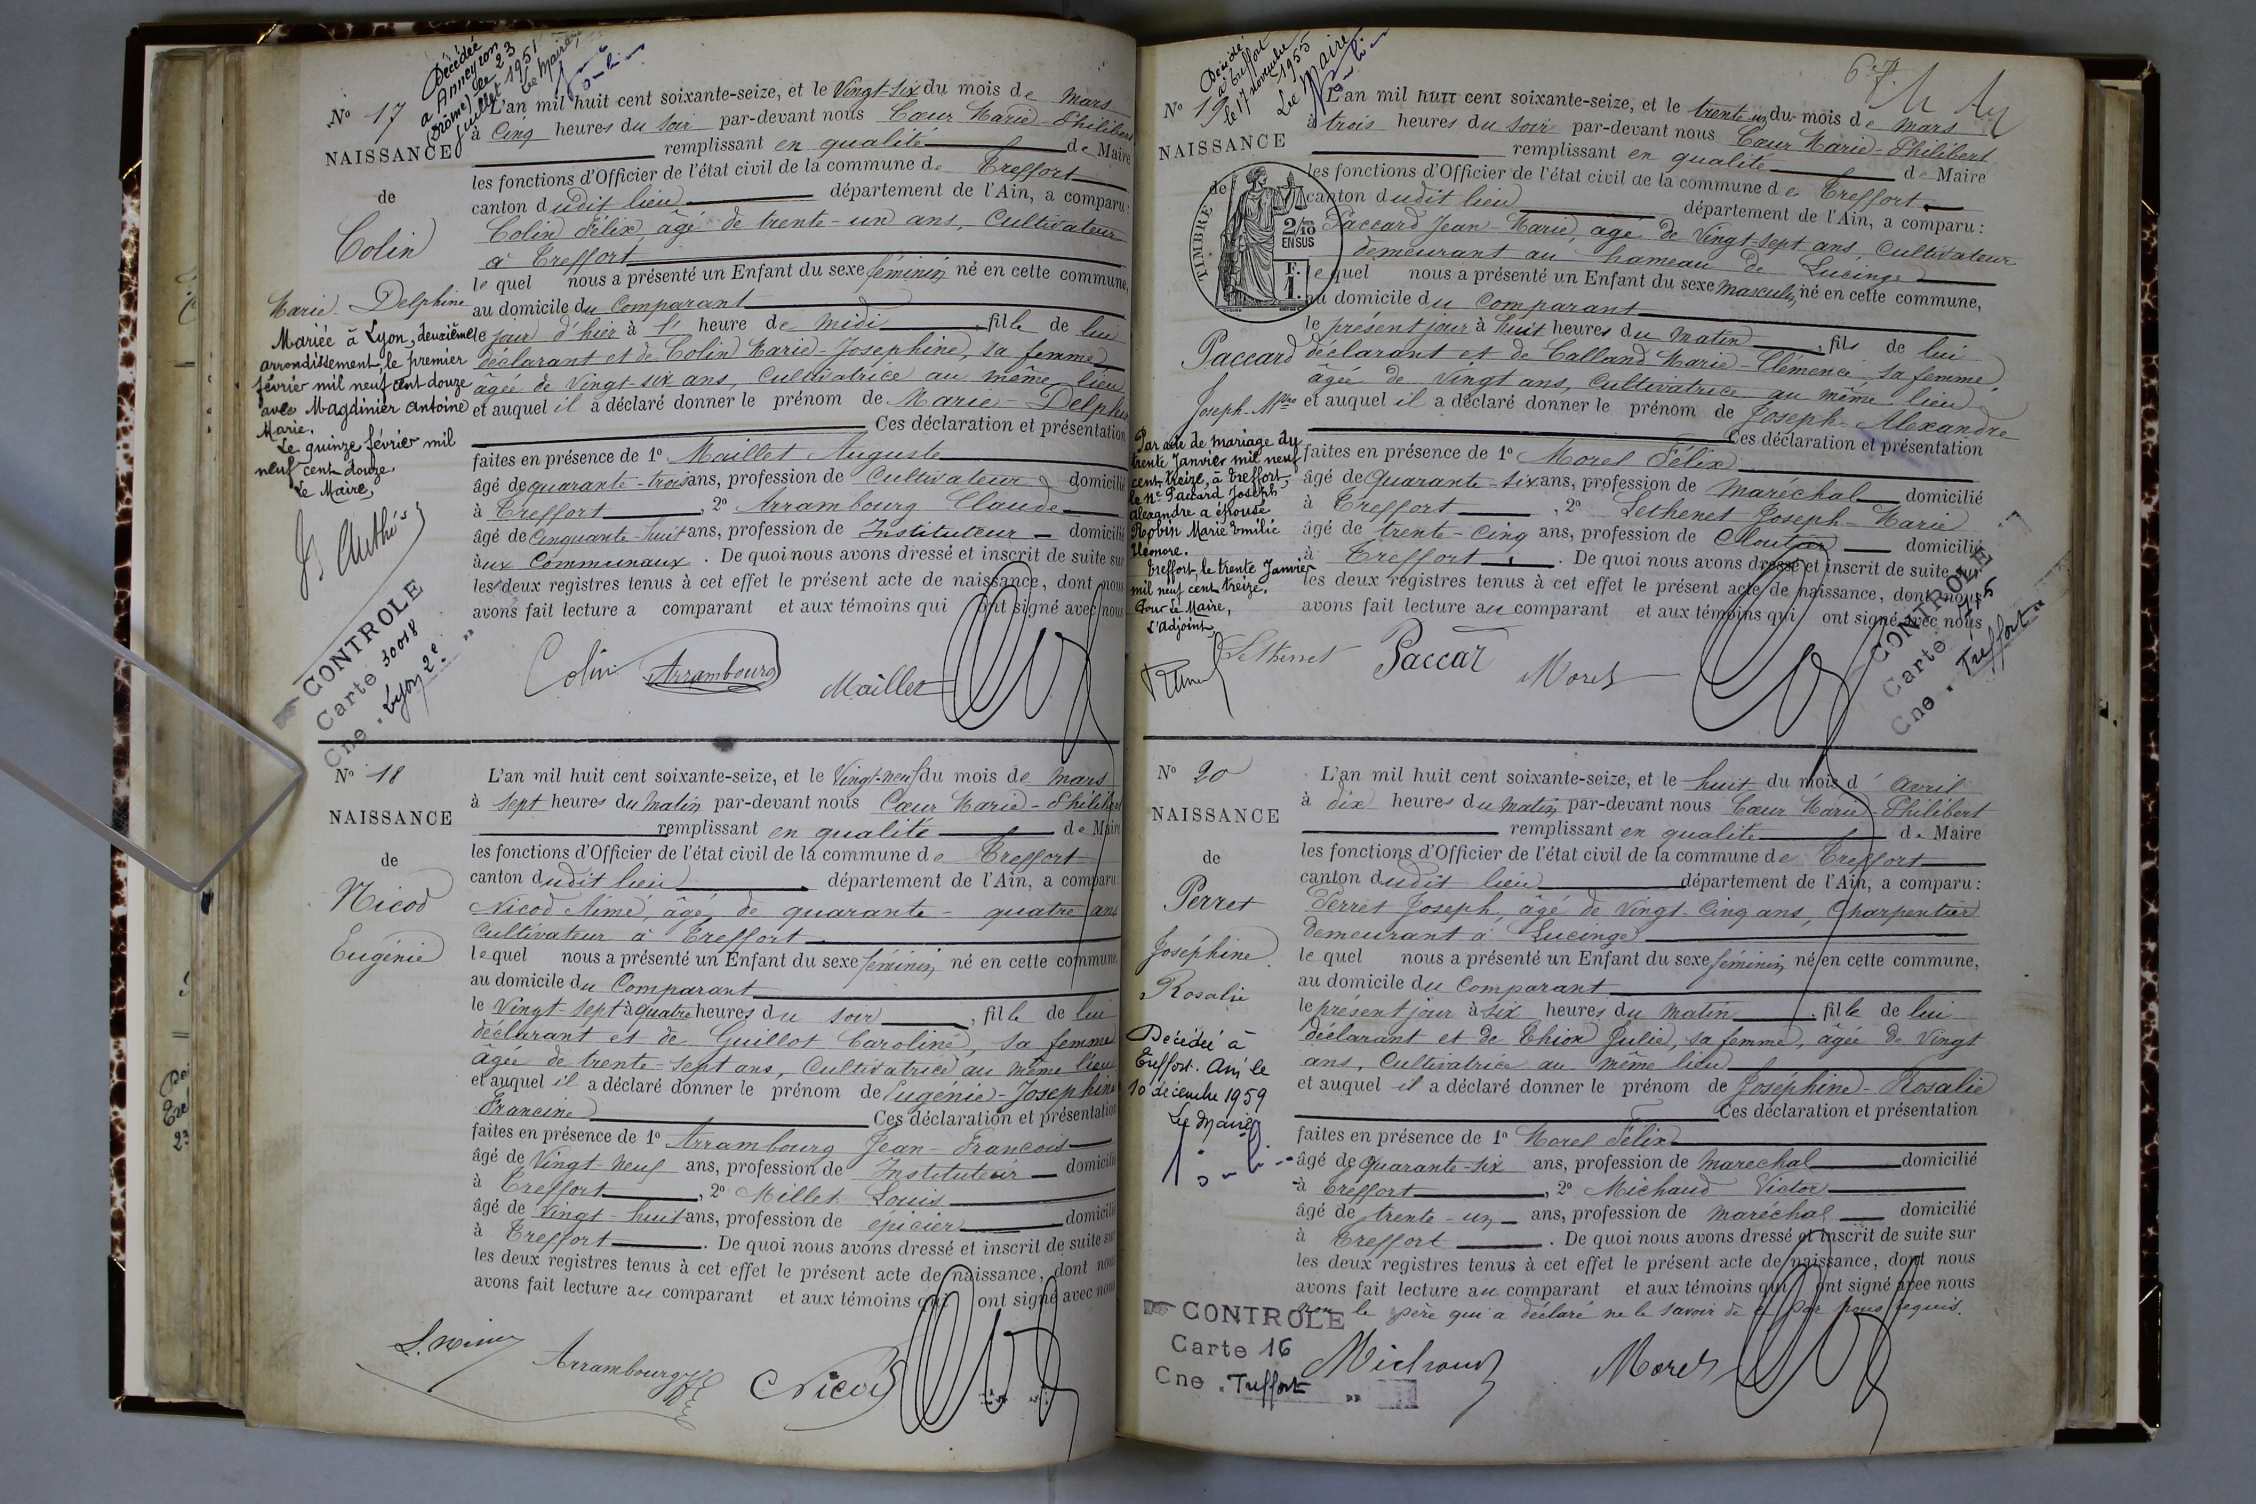 Décédée
a Anneyron
(Drôme) le 23
juillet 1951
Le Maire,
N° 17
NAISSANCE
de
Colin
Marie-Delphine
Mariée à Lyon, deuxième
arrondissement, le premier
février mil neuf cent douze
avec Magdinier Antoine
Marie.
Le quinze février mil
neuf cent douze,
Le Maire,
CONTROLE
Carte 30018
Cne "Lyon 2e"
L'an mil huit cent soixante-seize, et le Vingt-six du mois de mars
à Cinq heures du soir par-devant nous Cœur Marie-Philibert
remplissant en qualité de Maire
les fonctions d'Officier de l'état civil de la commune de Treffort
canton dudit lieu département de l'Ain, a comparu:
Colin Félix âgé de trente-un ans, Cultivateur
à Treffort
lequel nous a présenté un Enfant du sexe féminin né en cette commune,
au domicile du Comparant
le jour d'hier à l' heure de midi, fille de lui
déclarant et de Colin Marie-Josephine, sa femme
âgée de Vingt-six ans, Cultivatrice au même lieu
et auquel il a déclaré donner le prénom de Marie-Delphine
Ces déclaration et présentation
faites en présence de 1° Maillet Auguste
âgé de quarante-trois ans, profession de Cultivateur domicilié
à Treffort, 2° Arrambourg Claude
âgé de Cinquante-huit ans, profession de Instituteur domicilié
aux Communaux. De quoi nous avons dressé et inscrit de suite sur
les deux registres tenus à cet effet le présent acte de naissance, dont nous
avons fait lecture a comparant et aux témoins qui ont signé avec nous
Colin Arrambourg Maillet
N° 18
NAISSANCE
de
Nicod
Eugénie
L'an mil huit cent soixante-seize, et le Vingt-neuf du mois de mars
à sept heures du Matin par-devant nous Cœur Marie-Philibert
remplissant en qualité de Maire
les fonctions d'Officier de l'état civil de la commune de Treffort
canton dudit lieu département de l'Ain, a comparu
Nicod Aimé, âgé de quarante-quatre ans
Cultivateur à Treffort
lequel nous a présenté un Enfant du sexe féminin né en cette commune,
au domicile du Comparant
le Vingt-sept à quatre heures du soir, fille de lui
déclarant et de Guillot Caroline, sa femme
âgée de trente-sept ans, Cultivatrice au même lieu
et auquel il a déclaré donner le prénom de Eugénie-Josephine
Francine Ces déclaration et présentation
faites en présence de 1° Arrambourg Jean-François
âgé de Vingt-neuf ans, profession de Instituteur domicilié
à Treffort, 2° Millet Louis
âgé de Vingt-huit ans, profession de épicier domicilié
à Treffort. De quoi nous avons dressé et inscrit de suite sur
les deux registres tenus à cet effet le présent acte de naissance, dont nous
avons fait lecture au comparant et aux témoins qui ont signé avec nous
Arrambourg Nicod
Décédé
à Treffort
le 17 novembre
1955
Le Maire
N° 19
NAISSANCE
de
TIMBRE
2/10
EN SUS
F.
1.
Paccard
Joseph-Alexre
Par acte de mariage du
trente Janvier mil neuf
cent treize, à Treffort
le n° Paccard Joseph
Alexandre a épousé
Robin Marie Emilie
Eléonore.
Treffort, le trente Janvier
mil neuf cent treize.
Pour Le Maire,
L'Adjoint,
L'an mil huit cent soixante-seize, et le trente-un du mois de mars
à trois heures du soir par-devant nous Cœur Marie-Philibert
remplissant en qualité de Maire
les fonctions d'Officier de l'état civil de la commune de Treffort
canton dudit lieu département de l'Ain, a comparu:
Paccard Jean-Marie, âgé de Vingt-sept ans, Cultivateur
demeurant au hameau de Lucinge
lequel nous a présenté un Enfant du sexe masculin né en cette commune,
au domicile du Comparant
le présent jour à huit heures du matin, fils de lui
déclarant et de Calland Marie-Clémence sa femme
âgée de Vingt ans, Cultivatrice au même lieu
et auquel il a déclaré donner le prénom de Joseph-Alexandre
Ces déclaration et présentation
faites en présence de 1° Morel Félix
âgé de Quarante-six ans, profession de maréchal domicilié
à Treffort, 2° Lethenet Joseph-Marie
âgé de trente-cinq ans, profession de Cloutier domicilié
à Treffort. De quoi nous avons dressé et inscrit de suite sur
les deux registres tenus à cet effet le présent acte de naissance, dont nous
avons fait lecture au comparant et aux témoins qui ont signé avec nous
Lethenet Paccar Morel
CONTROLE
Carte
Cne "Treffort"
N° 20
NAISSANCE
de
Perret
Joséphine
Rosalie
Décédée à
Treffort. Ain le
10 décembre 1959
Le Maire
L'an mil huit cent soixante-seize, et le huit du mois d'avril
à dix heures du Matin par-devant nous Cœur Marie-Philibert
remplissant en qualité de Maire
les fonctions d'Officier de l'état civil de la commune de Treffort
canton dudit lieu département de l'Ain, a comparu:
Perret Joseph, âgé de Vingt-Cinq ans, Charpentier
demeurant à Lucinge
lequel nous a présenté un Enfant du sexe féminin né en cette commune,
au domicile du Comparant
le présent jour à six heures du matin, fille de lui
déclarant et de Thion Julie, sa femme, âgée de Vingt
ans, Cultivatrice au même lieu
et auquel il a déclaré donner le prénom de Joséphine-Rosalie
Ces déclaration et présentation
faites en présence de 1° Morel Félix
âgé de Quarante-six ans, profession de marechal domicilié
à Treffort, 2° Michaud Victor
âgé de trente-un ans, profession de maréchal domicilié
à Treffort. De quoi nous avons dressé et inscrit de suite sur
les deux registres tenus à cet effet le présent acte de naissance, dont nous
avons fait lecture au comparant et aux témoins qui ont signé avec nous
non le père qui a déclaré ne le savoir de ce par nous requis.
Michaud Morel
CONTROLE
Carte 16
Cne "Treffort"